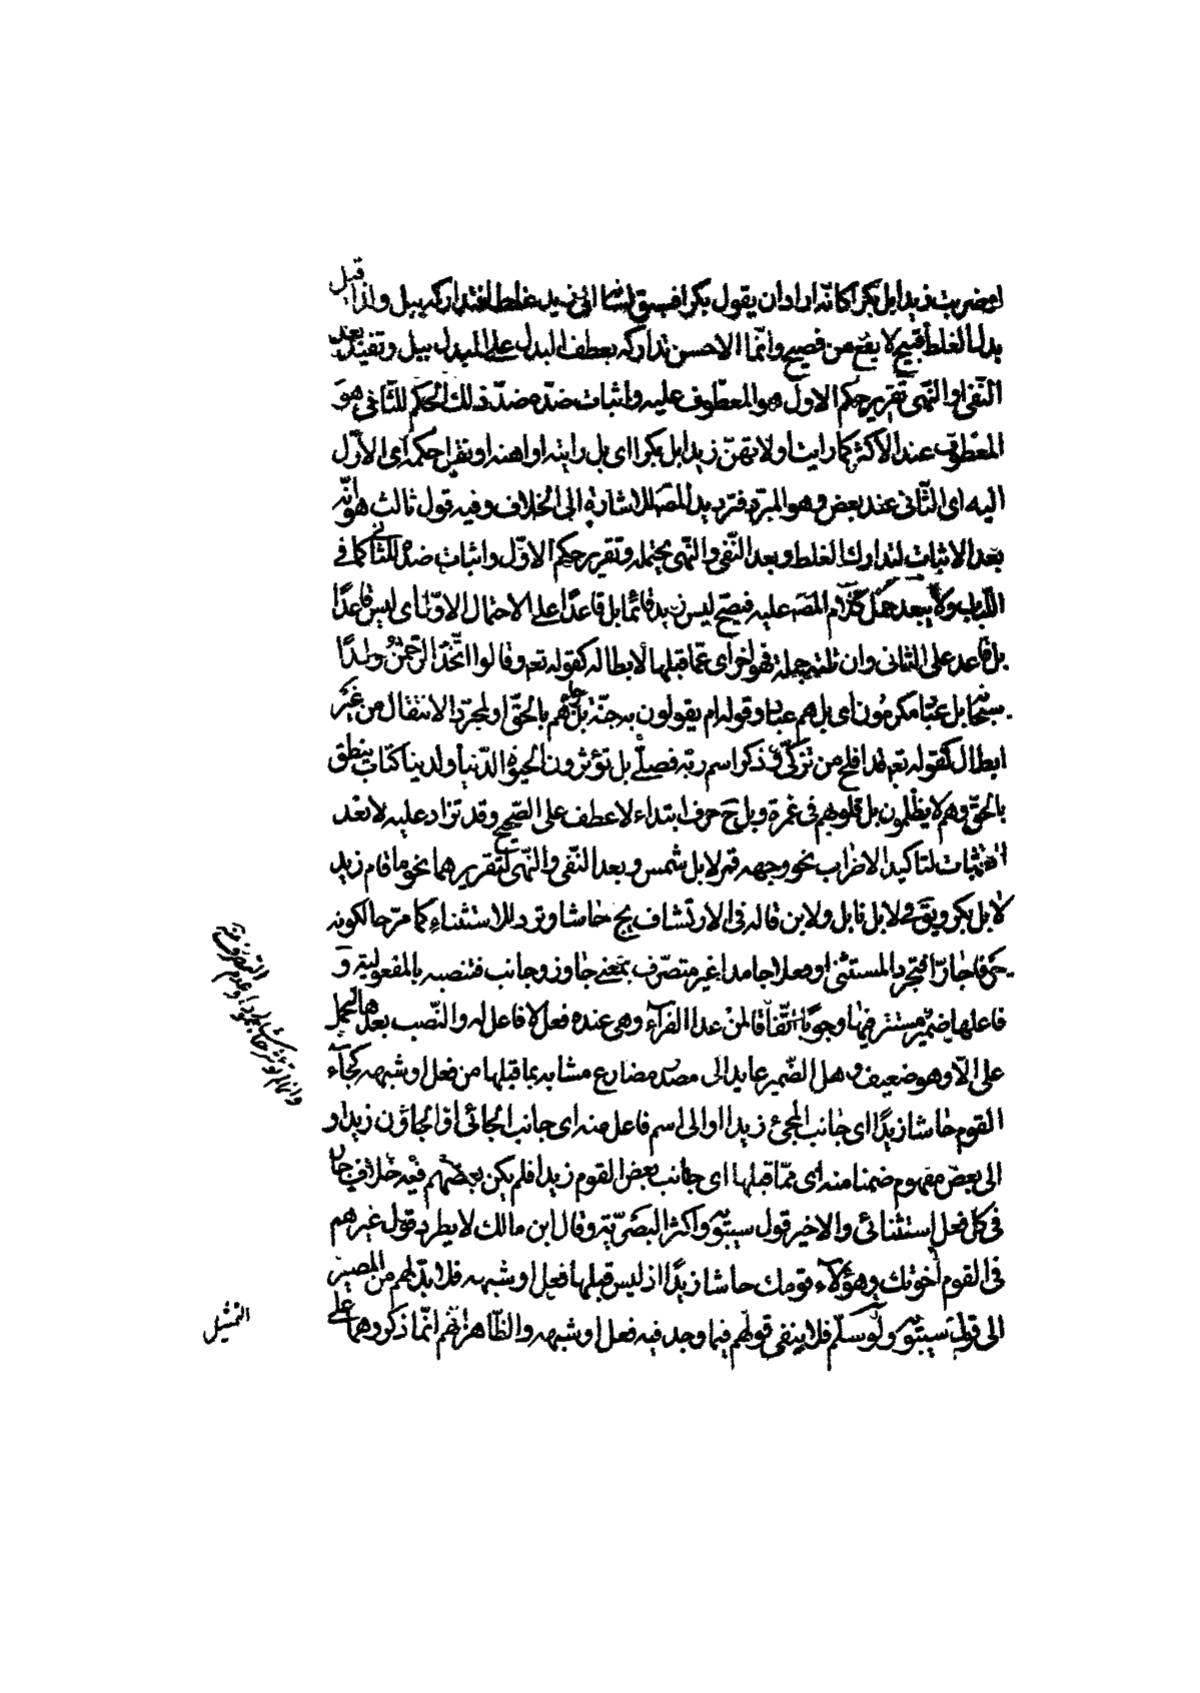 او ضربت زيدا بل بكرا كانه اراد ان يقول بكرا فسبق لسانه الى زيد غلطا فتداركه ببل ولذا قيل
بدل الغلط قبيح لا يقع من فصيح وانّما الاحسن تداركه بعطف البدل على المبدل ببل وتفيد بعد
النّفى او النّهى تقرير حكم الاول هو المعطوف عليه واثبات ضدّه ضدّ ذلك الحكم للثّانى هو
المعطوف عند الاكثر كما رايت او لا تهن زيدا بل بكرا اى بل رايته او اهنه او نقل حكمه اى الاوّل
اليه اى الثّانى عند بعض وهو المبرّد فترديد المصَ للاشارة الى الخلاف وفيه قول ثالث هو انّه
بعد الاثبات لتدارك الغلط وبعد النّفى والنّهى يحتمله وتقرير حكم الاوّل واثبات ضدّه للثّانى كما فى
اللباب ولا يبعد حمل كلام المصَ عليه فيصحّ ليس زيد قائما بل قاعدًا على الاحتمال الاوّل اى ليس قاعدًا
بل قاعد على الثانى وان تلته جملة فهو لاضراى عمّا قبلها لابطاله كقوله تعه وقالوا اتّخذ الرّحمنُ ولدًا
سبحانه بل عباد مكرمُون اى بل هم عباد وقوله ام يقولون به جنّة بل جاءهم بالحقّ او لمجرّد الانتقال من غير
ابطال كقوله تعه قد افلح من تزكّى وذكر اسم ربّه فصلّى بل تؤثرون الحيوة الدّنيا ولدينا كتاب ينطق
بالحقّ وهم لا يظلمون بل قلوبهم فى غمرة وبل حَ حرف ابتداء لا عطف على الصّحيح وقد تزاد عليه لا بعد
الاثبات لتاكيد الاضراب نحو وجهه قمر لا بل شمس وبعد النّفى والنّهى لتقريرهما نحو ما قام زيد
لا بل بكر ويقَ فى لا بل نابل ولابن قاله فى الارتشاف يج حاشا وترد للاستثناء كما مرّ حالكونه
حرفا جارّا فتجرّ المستثنى او فعلا جامدا غير متصرّف بمعنى جاوز وجانب فتنصبه بالمفعولية و
فاعلها ضمير مستتر فيها وجوبًا اتّفاقا لمنْ عدا الفرّاء وهى عنده فعل لا فاعل له والنّصب بعدها لحمل
على الّا وهو ضعيف وهل الضّمير عايد الى مصدر مضارع مشابه بما قبلها من فعل او شبهه كجاء
القوم حاشا زيدًا اى جانب المجئ زيدا او الى اسم فاعل منه اى جانب الجائى او الجاؤن زيدا و
الى بعض مفهوم ضمنا منه اى ممّا قبلها اى جانب بعض القوم زيدا فلم يكن بعضهم فيه خلاف جار
فى كل فعل استثنائى والاخير قول سيبويه واكثر البصريّة وقال ابن مالك لا يطرد قول غيرهم
فى القوم اخوتك وهؤلاء قومك حاشا زيدًا اذ ليس قبلها فعل او شبهه فلا بدّ لهم من المصير
الى قول سيبويه ولو سلّم فلا ينفى قولهم فيما وجد فيه فعل او شبهه والظّاهر انّهم انّما ذكروهما على
التمثيل